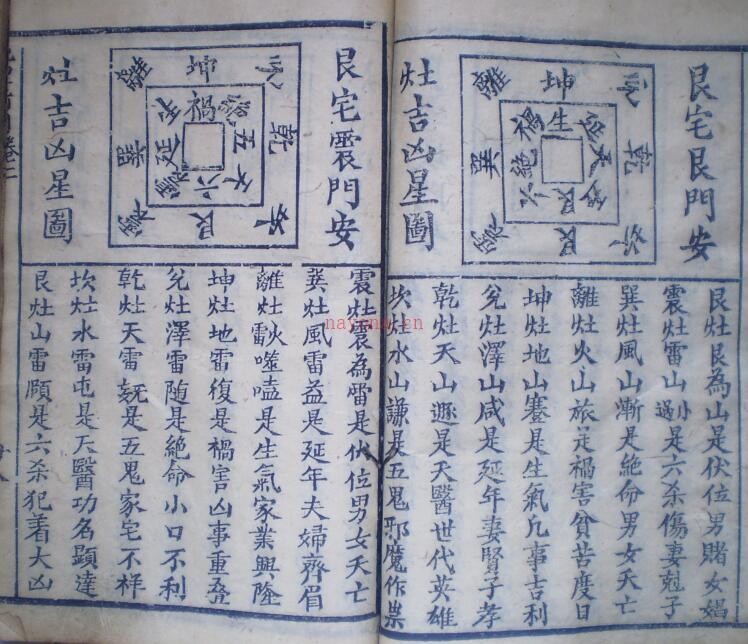 艮宅艮門安
離 坤 兌
巽 乾
震 艮 坎
禍 生 延
絕 天
六 艮 五
灶吉凶星圖
艮灶艮為山是伏位男賭女娼
震灶雷山小過是六杀傷妻尅子
巽灶風山漸是絕命男女夭亡
離灶火山旅是禍害貧苦度日
坤灶地山蹇是生氣凡事吉利
兌灶澤山咸是延年妻賢子孝
乾灶天山遯是天醫世代英雄
坎灶水山謙是五鬼邪魔作祟
艮宅震門安
離 坤 兌
巽 乾
震 艮 坎
生 禍 絕
延 五
震 六 天
灶吉凶星圖
震灶震為雷是伏位男女夭亡
巽灶風雷益是延年夫婦齊眉
離灶火雷噬嗑是生氣家業興隆
坤灶地雷復是禍害凶事重叠
兌灶澤雷随是絕命小口不利
乾灶天雷无妄是五鬼家宅不祥
坎灶水雷屯是天醫功名顯達
艮灶山雷頤是六杀犯着大凶